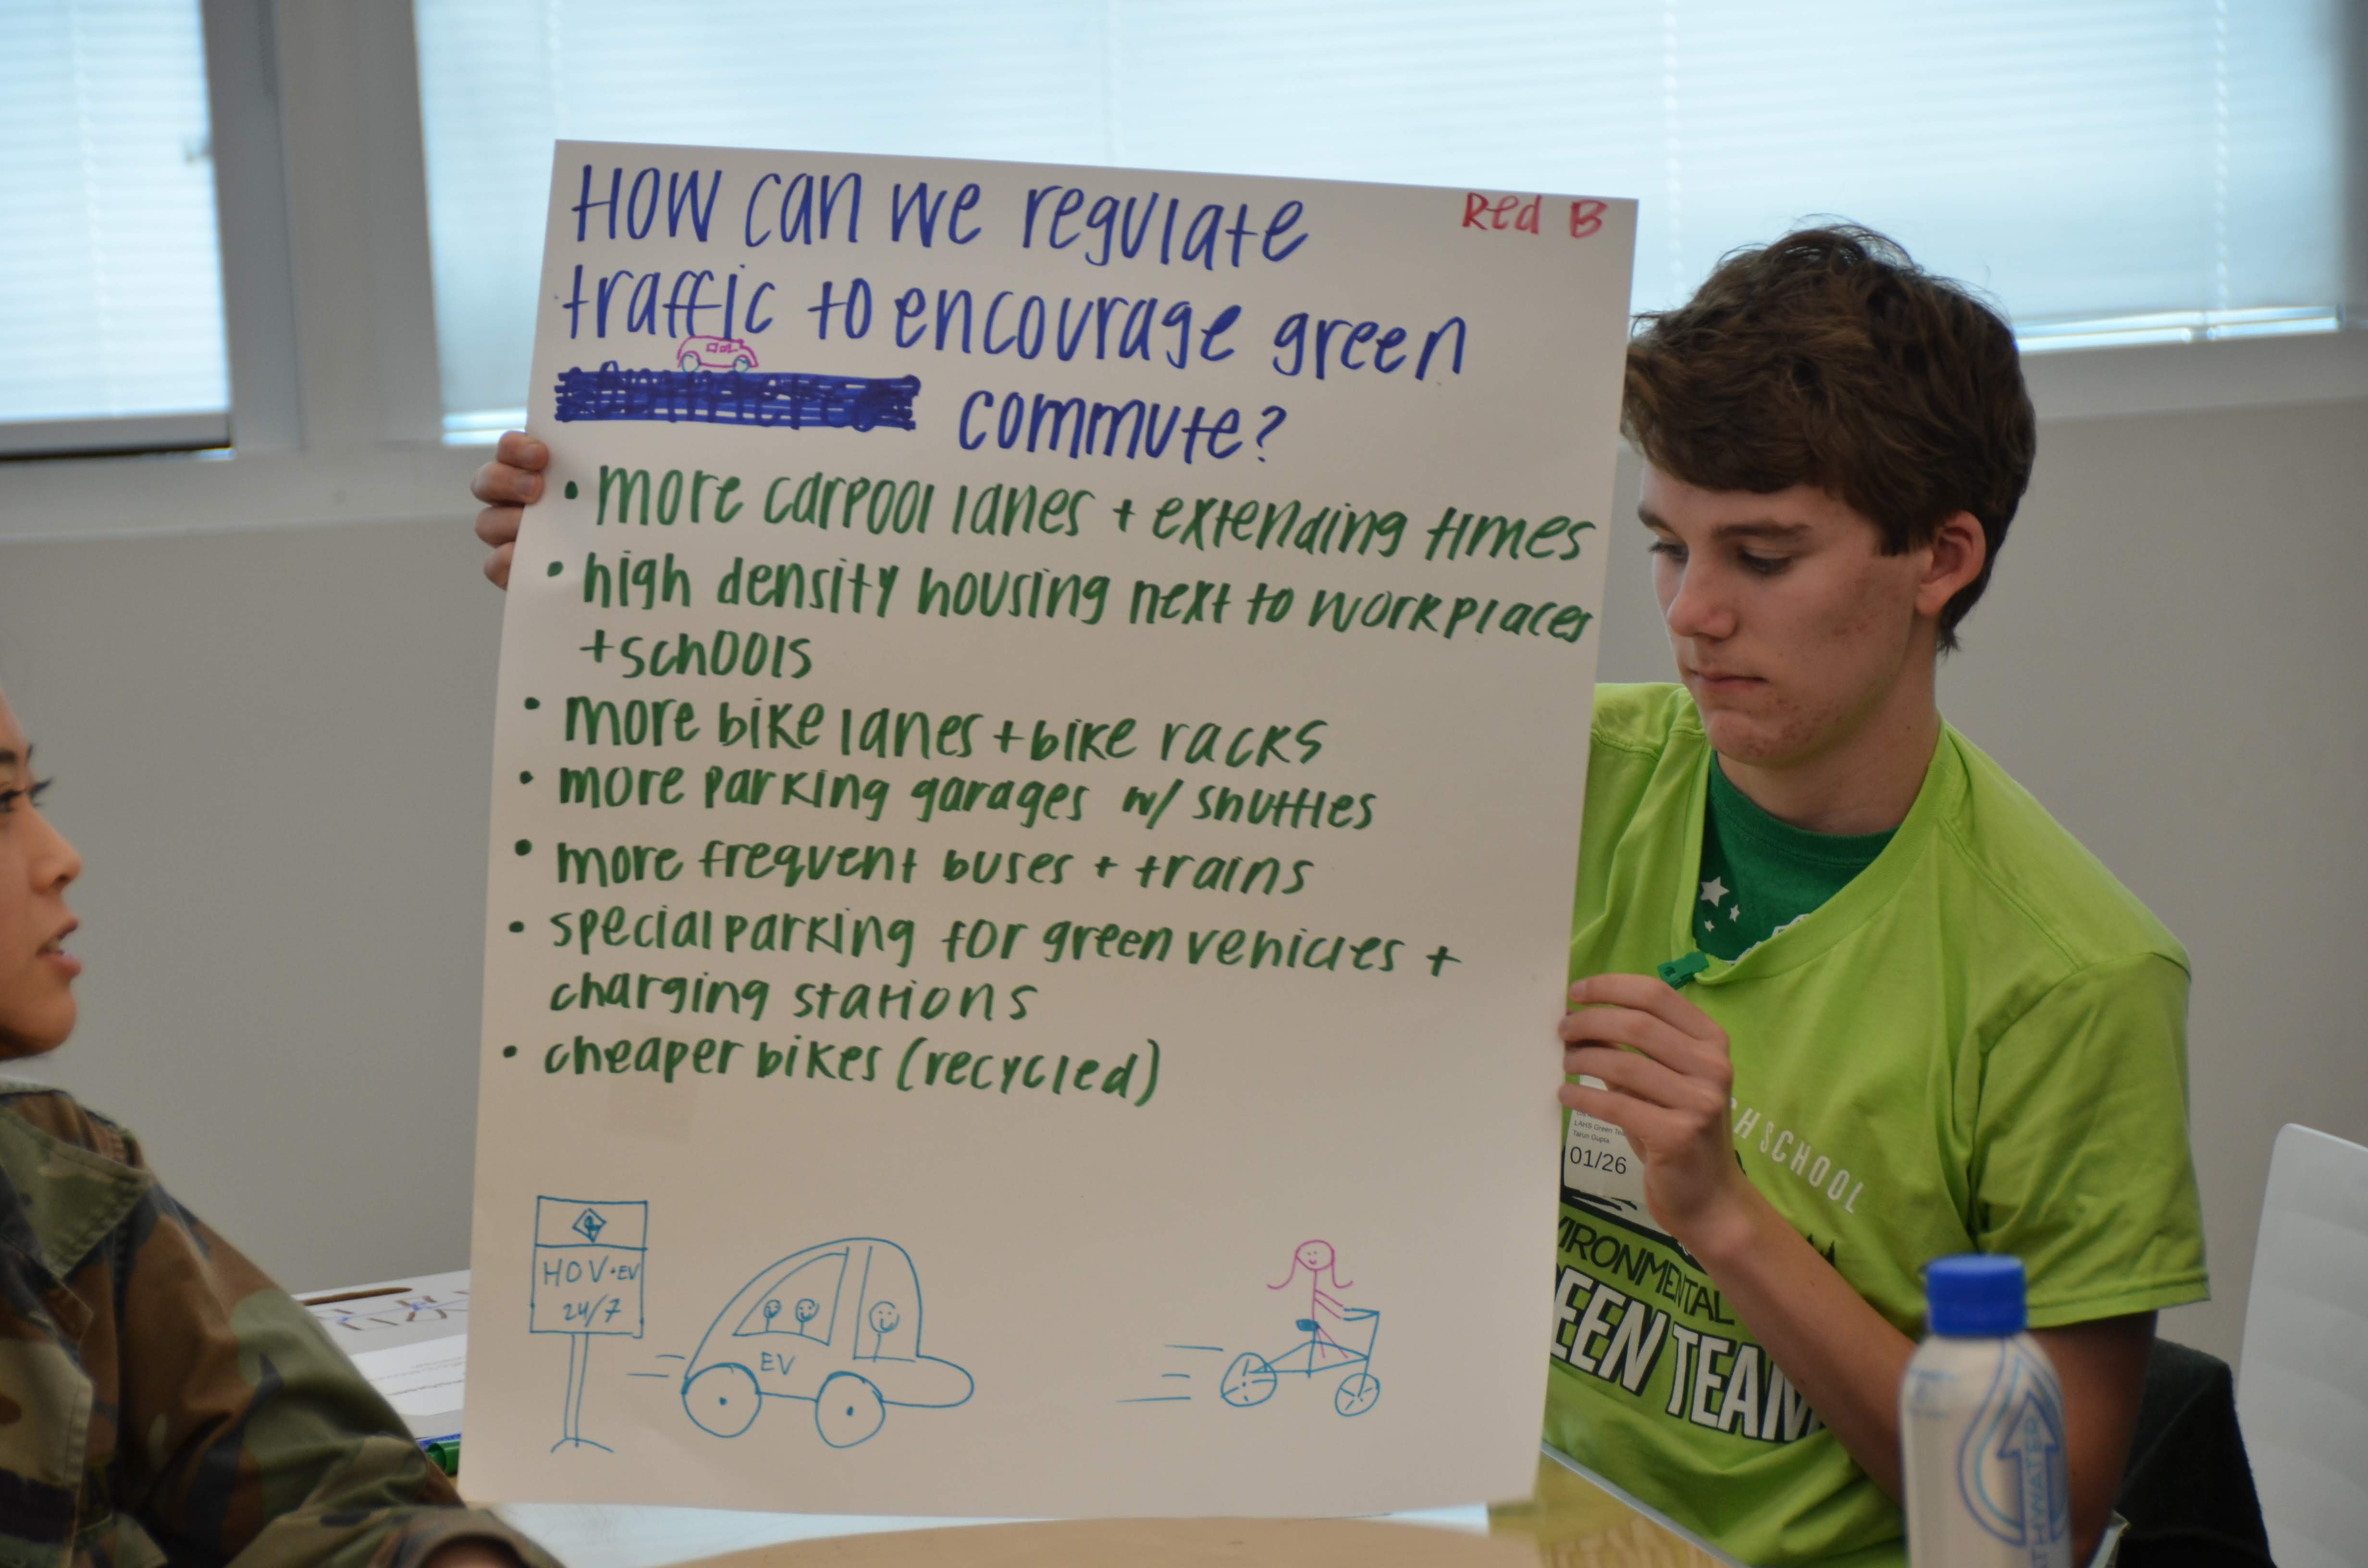 How can we regulate
Red B
traffic to encourage green
commute?
• more carpool lanes + extending times
• high density housing next to workplaces
+ schools
• more bike lanes + bike racks
• more parking garages w/ shuttles
• more frequent buses + trains
• special parking for green vehicles +
charging stations
• cheaper bikes (recycled)
HOV + EV
24/7
EV
LAHS Green Tea
Tarun Gupta
01/26
H SCHOOL
VIRONMENTAL
EEN TEAM
THWATER